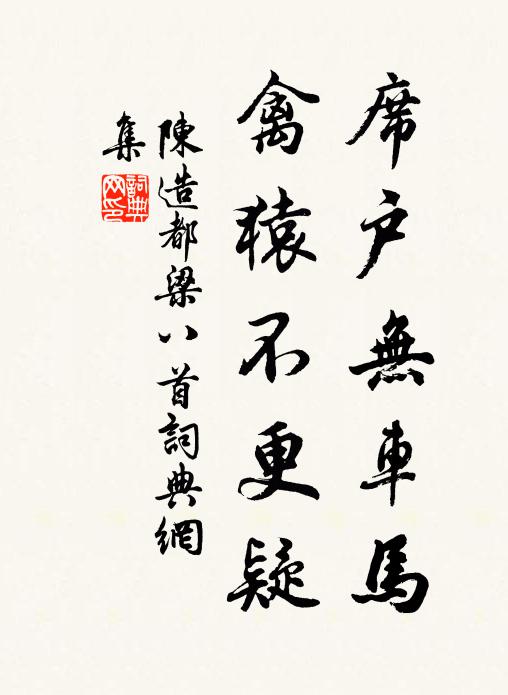 席戶無車馬
禽猿不更疑
陳造都梁八首詞典網
集
詞典
网印